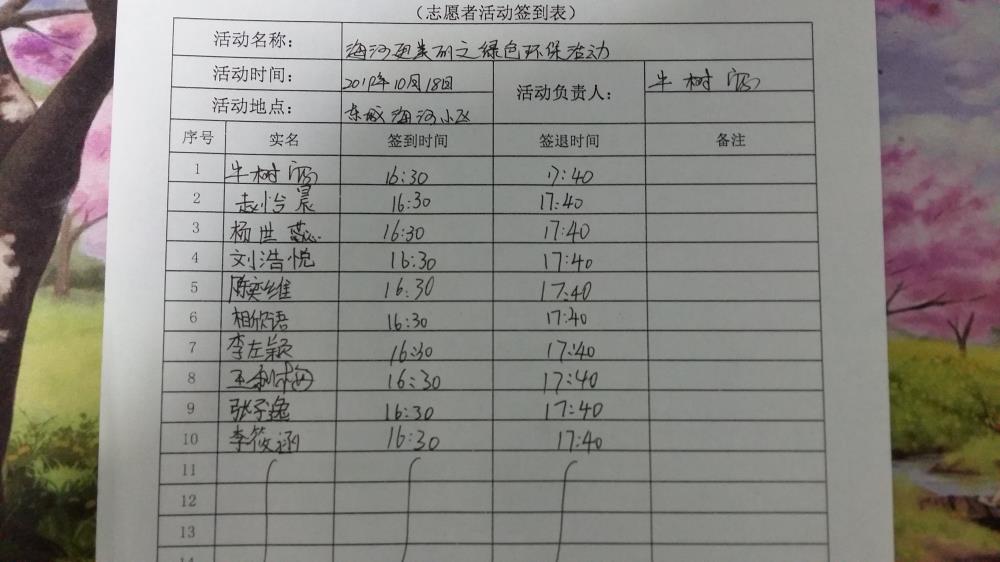 （志愿者活动签到表）
活动名称： 海河更美丽之绿色环保活动
活动时间： 2019年10月18日
活动负责人： 牛树
活动地点： 东城海河小区
序号 实名 签到时间 签退时间 备注
1 牛树 16:30 17:40
2 赵怡晨 16:30 17:40
3 杨世蕊 16:30 17:40
4 刘浩悦 16:30 17:40
5 陈奕维 16:30 17:40
6 相欣语 16:30 17:40
7 李左颖 16:30 17:40
8 王利梅 16:30 17:40
9 张子逸 16:30 17:40
10 李筱涵 16:30 17:40
11
12
13
14